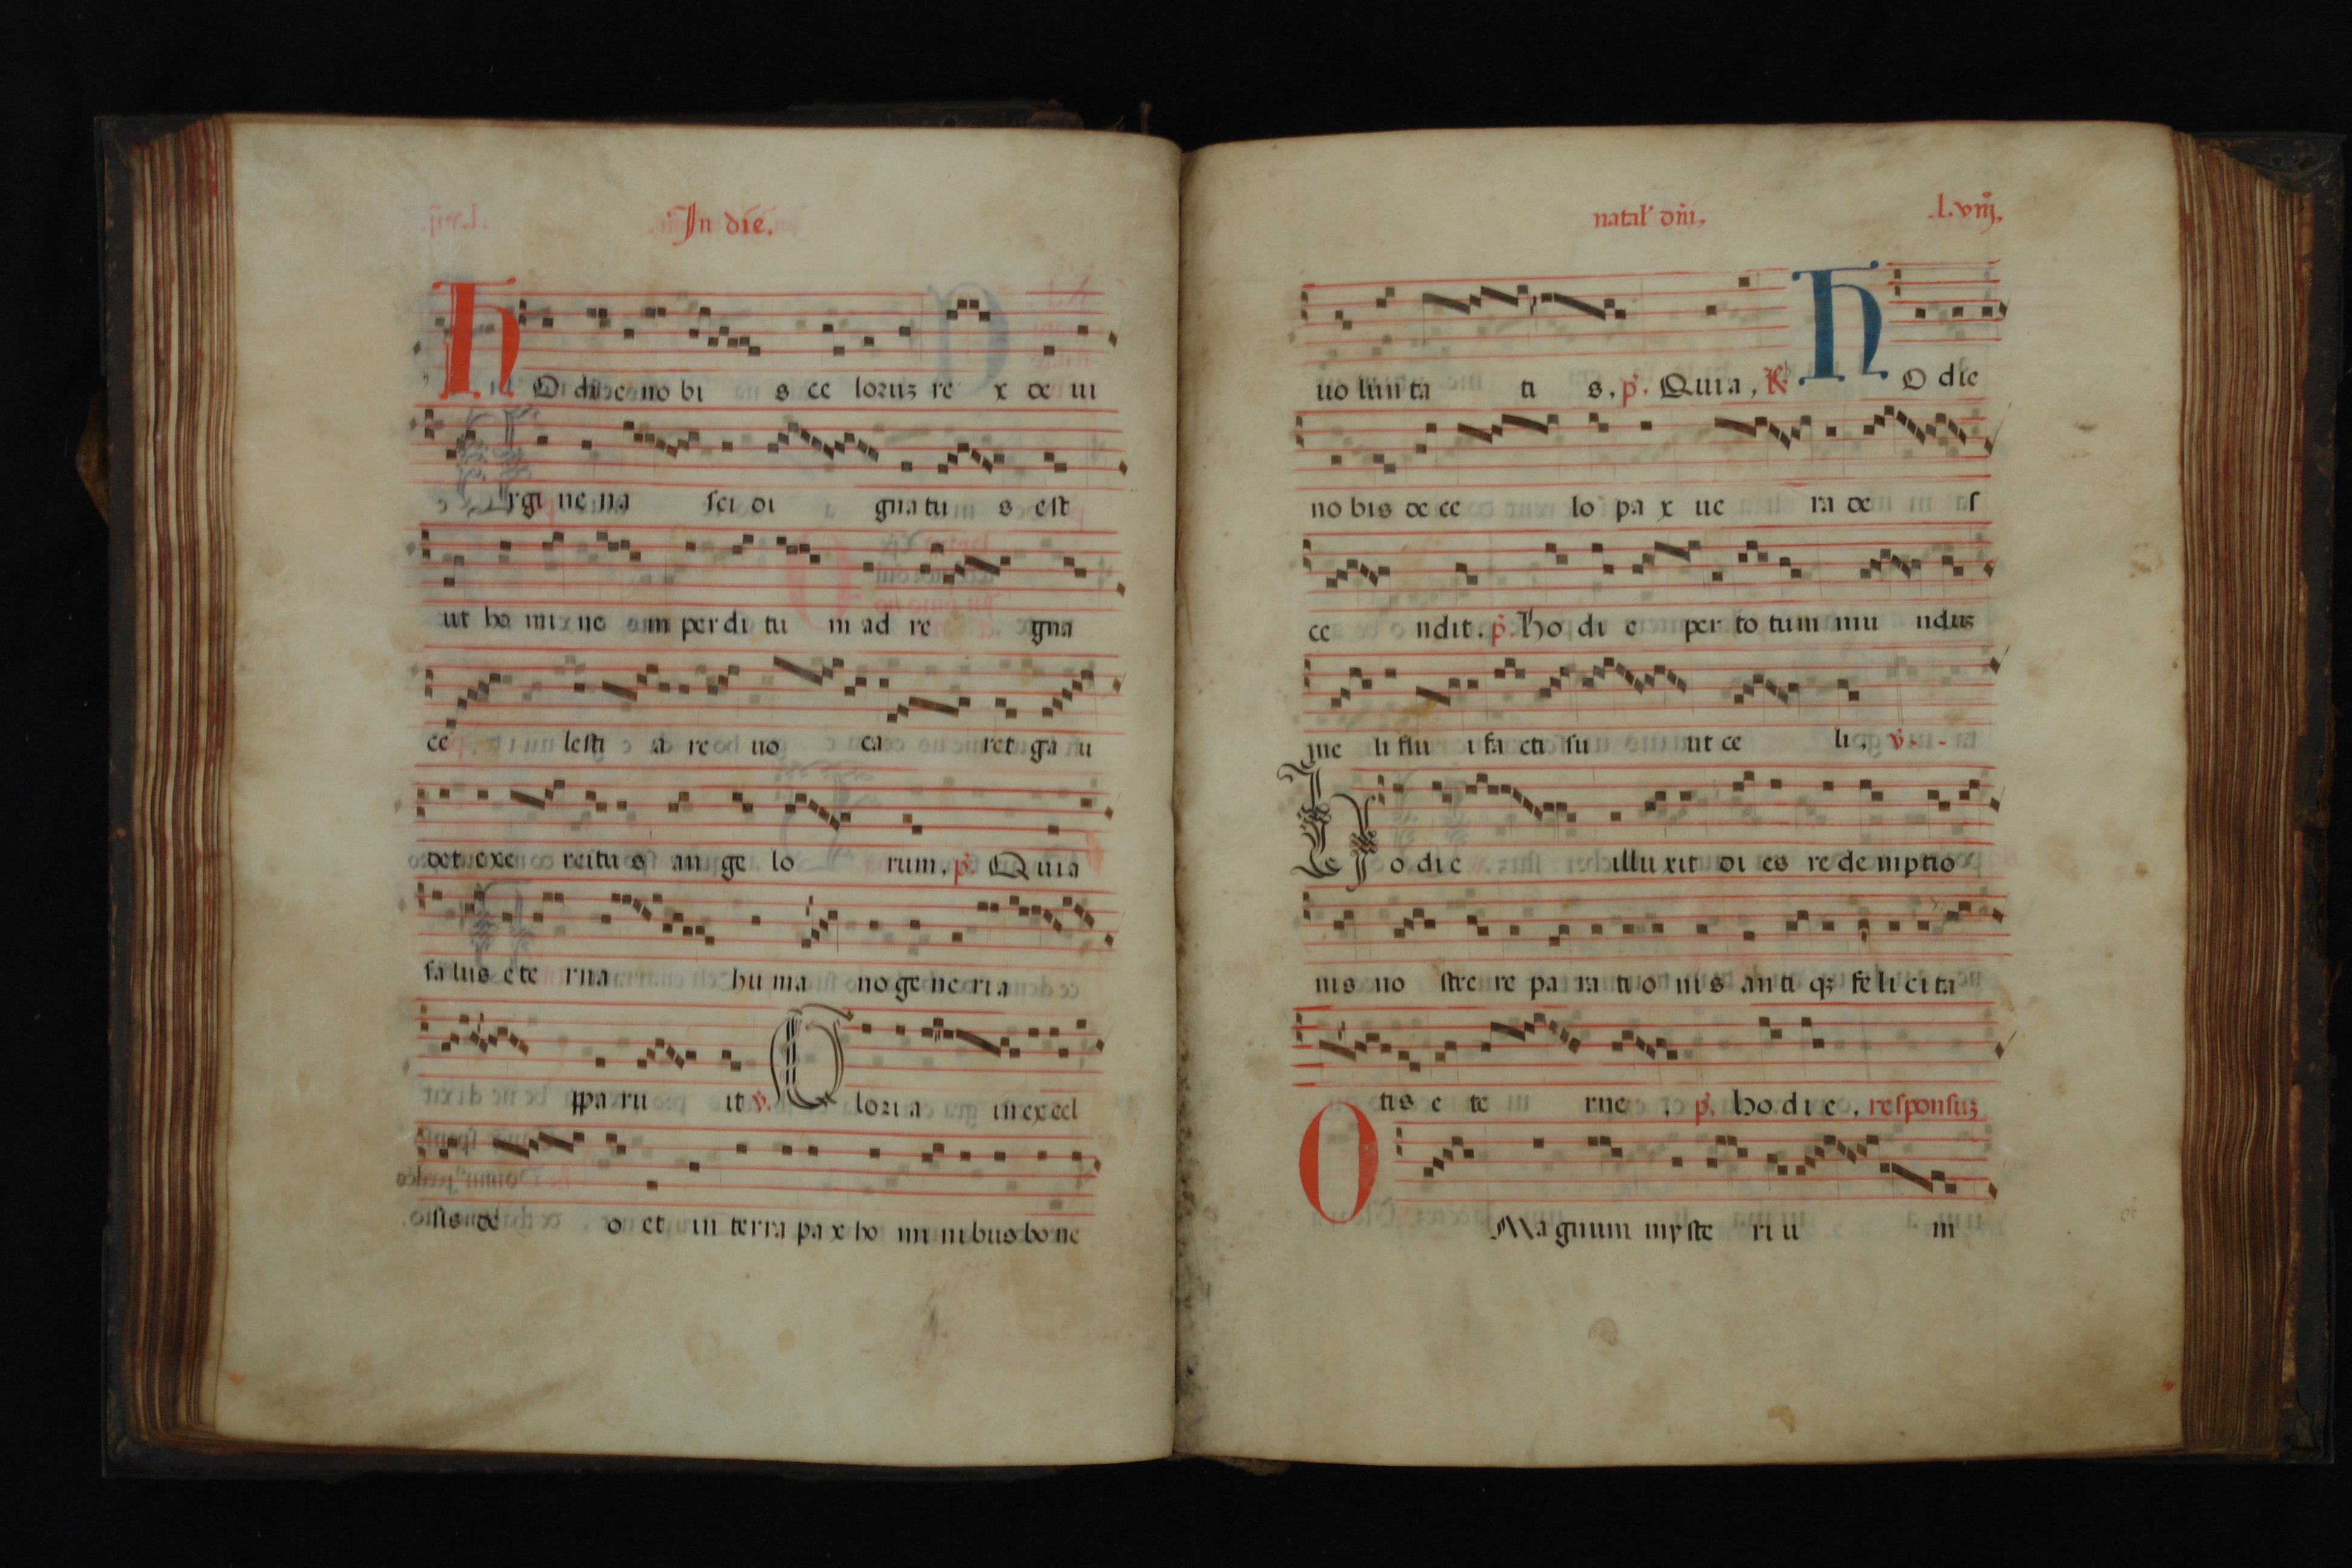 In die.
HO die no bi s ce loruz re x de ui
rgi ne na sci di gna tu s est
ut ho mi ne m perdi tu m ad re gna
ce lesti a re uo ca ret ga u
det exe rcitu s an ge lo rum. p̄. Quia
salus ete rna hu ma no ge ne ri a
ppa ru it ṽ. Gloria in excel
sis de o et in terra pa x ho mi nibus bo ne
natal' dn̄i. .l.viij.
uo lun ta ti s. p̄. Quia, R HO die
no bis de ce lo pa x ue ra de s
ce ndit. p̄. Ho di e per to tum mu nduz
me li flu i fa cti su nt ce li. ṽ.
Ho die illu xit di es re de mptio
nis no stre re pa ra ti o nis an ti qz fe li ci ta
tis e te rne . p̄. ho di e, responsuz
O Ma gnum myste ri u m